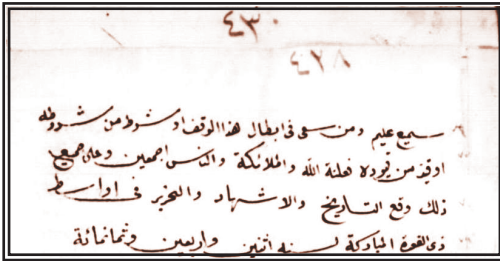 ٤٣٠
٤٢٨
سميع عليم ومن سعى فى ابطال هذا الوقف او شرط من شروطه
او قيد من قيوده فعلنة الله والملائكة والناس اجمعين وعلى جميع
ذلك وقع التاريخ والاشهاد والتحرير فى اواسط
ذى القعدة المباركة لسنه اثنين واربعين وثمانمائة